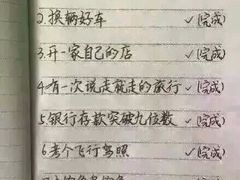 2.换辆好车 ✓(完成)
3.开一家自己的店 ✓(完成)
4.有一次说走就走的旅行 ✓(完成)
5.银行存款突破九位数 ✓(完成)
6.考个飞行驾照 ✓(完成)